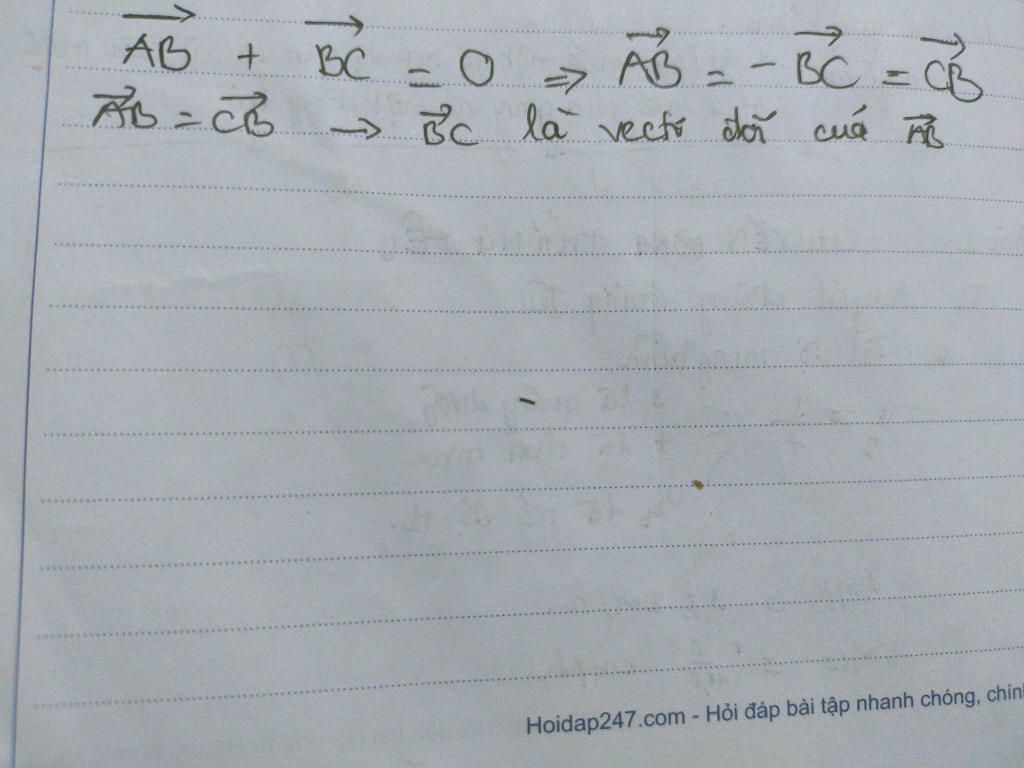 AB + BC = 0 => AB = - BC = CB
AB = CB → BC là vectơ đối của AB
Hoidap247.com - Hỏi đáp bài tập nhanh chóng, chính